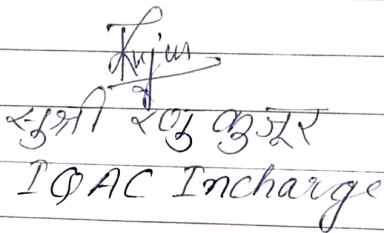 Kujur
सुश्री रेणु कुजूर
IQAC Incharge